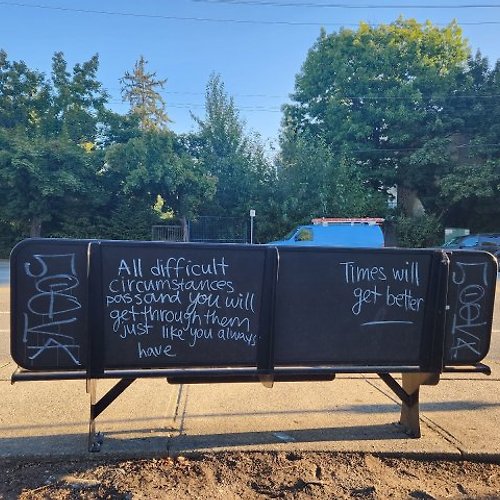 All difficult
circumstances
pass and you will
get through them
just like you always
have
Times will
get better